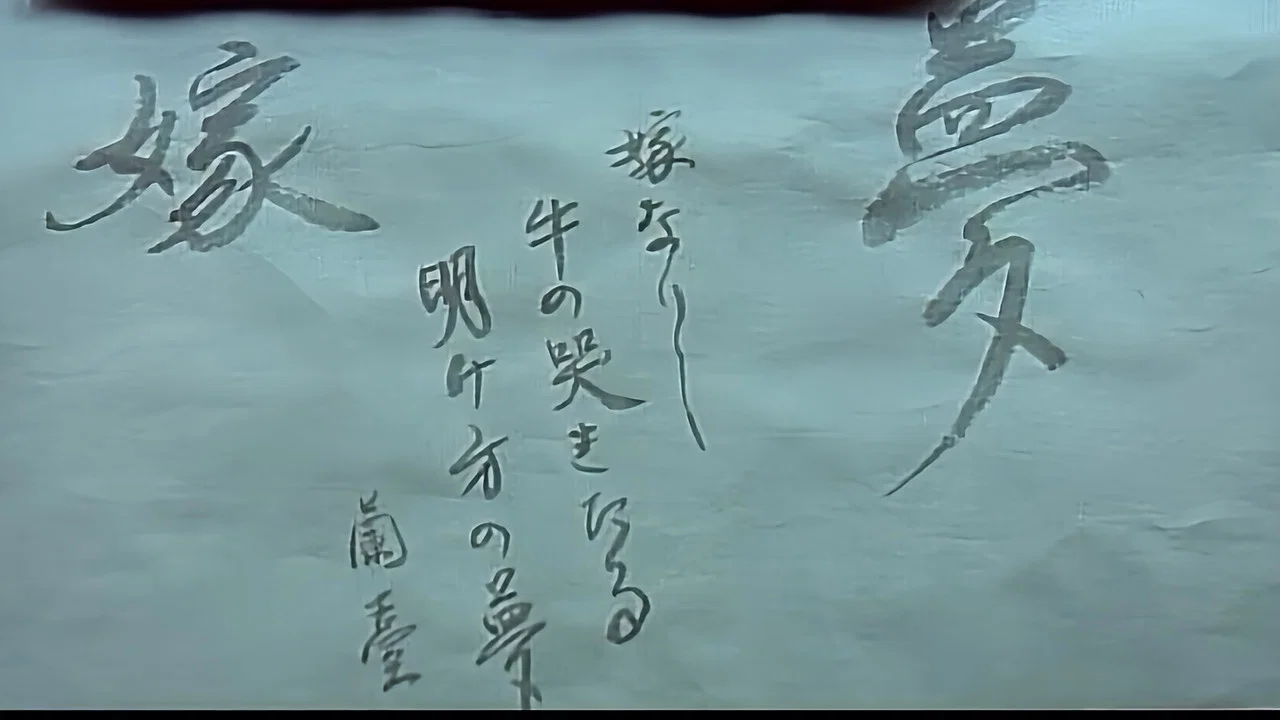 夢
嫁なし
牛の哭きたる
明け方の夢
蘭臺
嫁